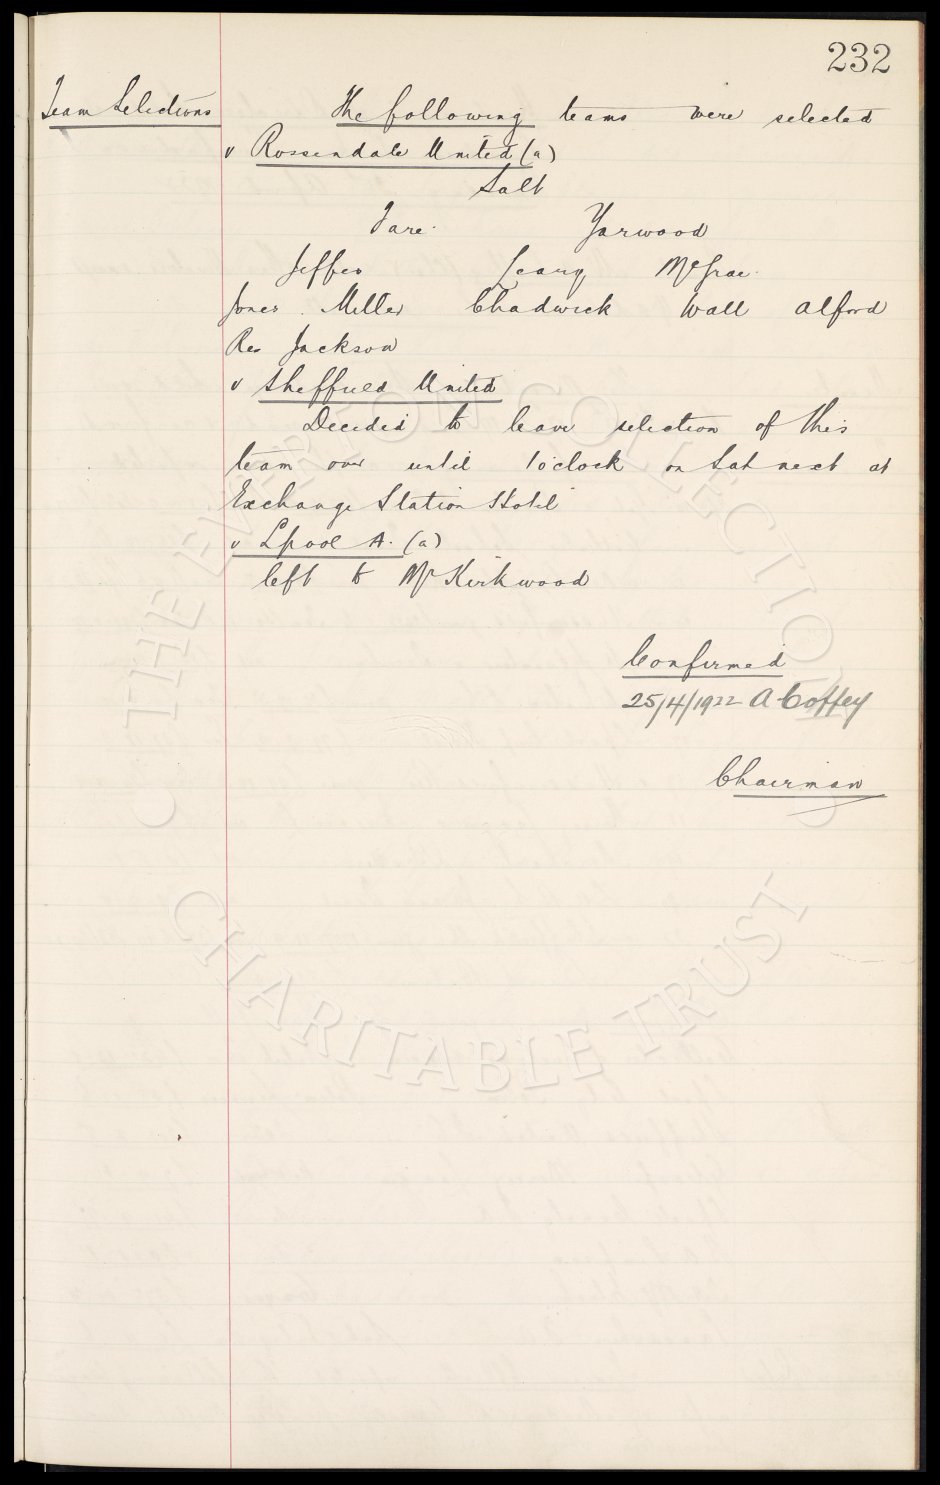 232
Team Selections The following teams were selected
v Rossendale United (a)
Salt
Fare. Yarwood
Jeffes Leary McGrae.
Jones. Miller Chadwick Wall Alford
Res Jackson
v Sheffield United
Decided to leave selection of this
team over until 1 o'clock on Sat next at
Exchange Station Hotel
v Lpool A. (a)
left to Mr Kirkwood
Confirmed
25/4/1922 A Coffey
Chairman
THE EVERTON COLLECTION
CHARITABLE TRUST